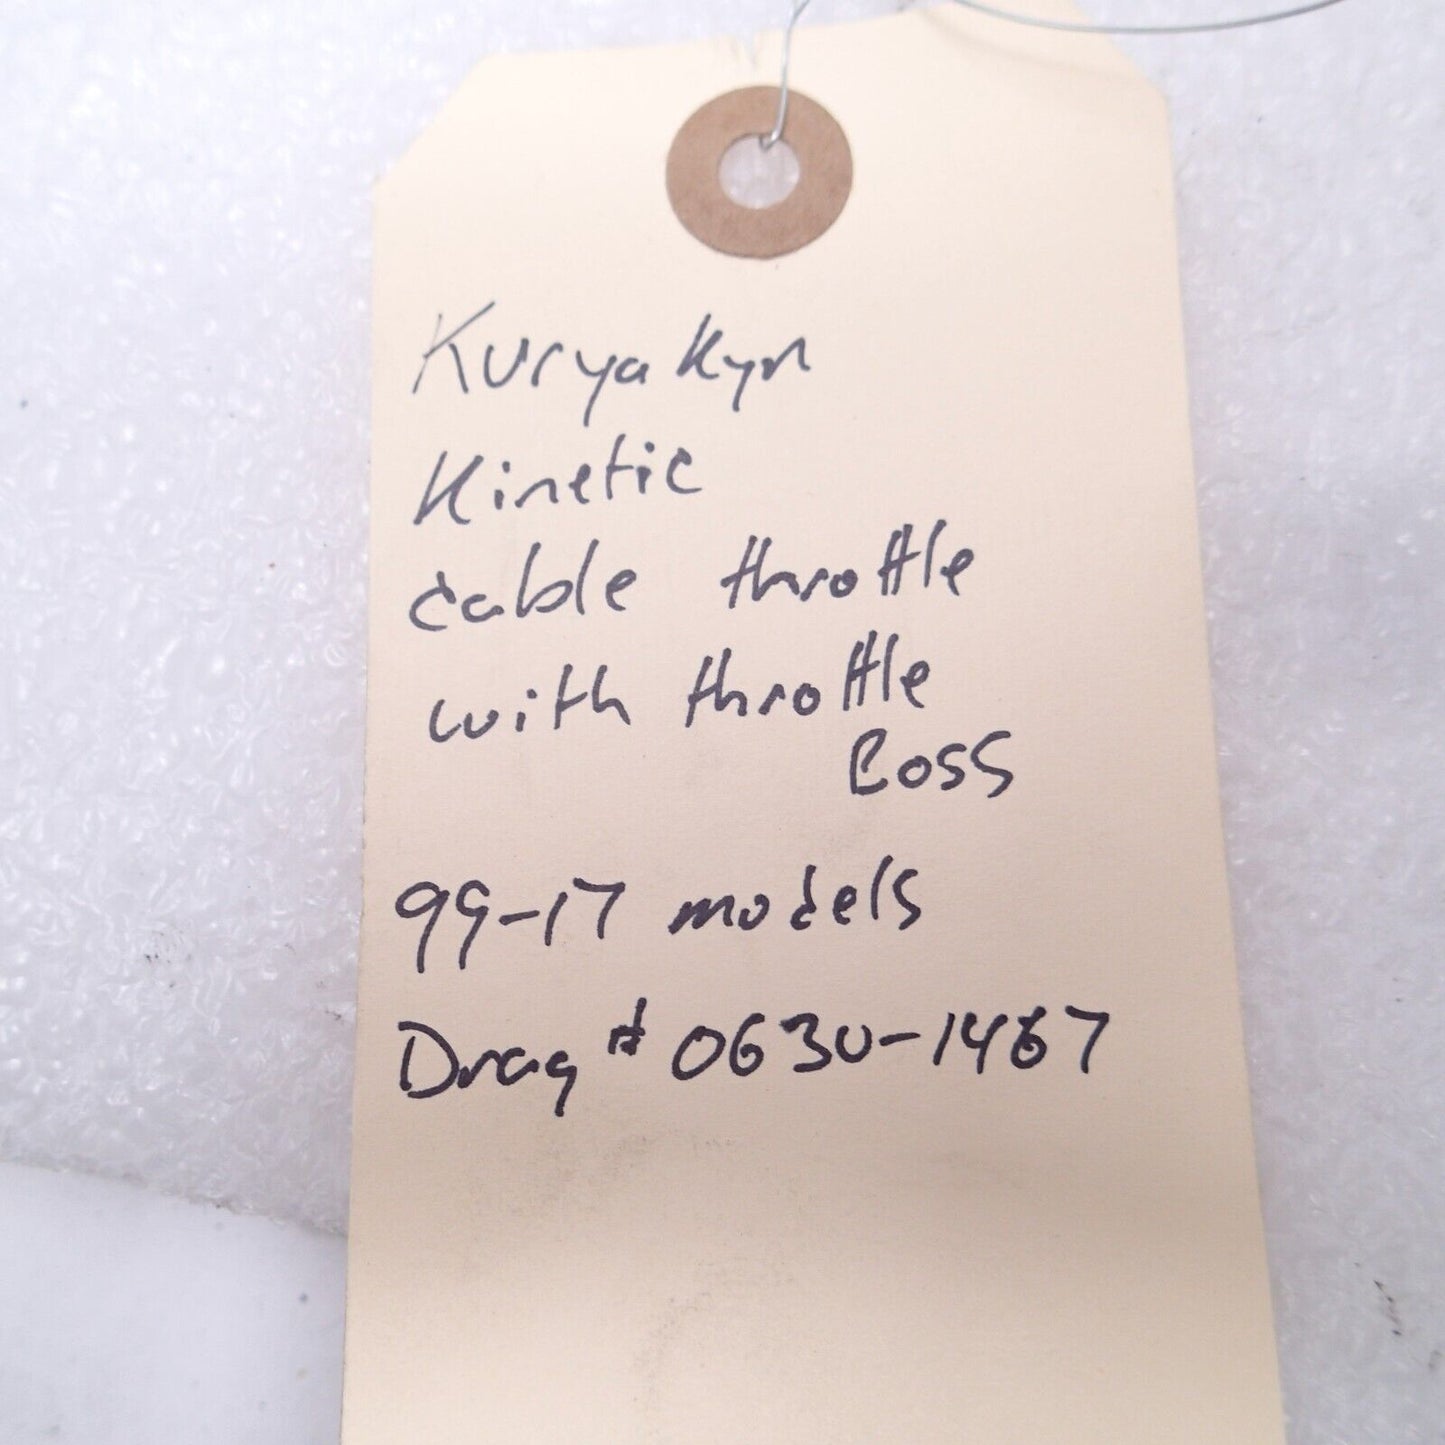 Kuryakyn
Kinetic
cable throttle
with throttle
Boss
99-17 models
Drag # 0630-1467